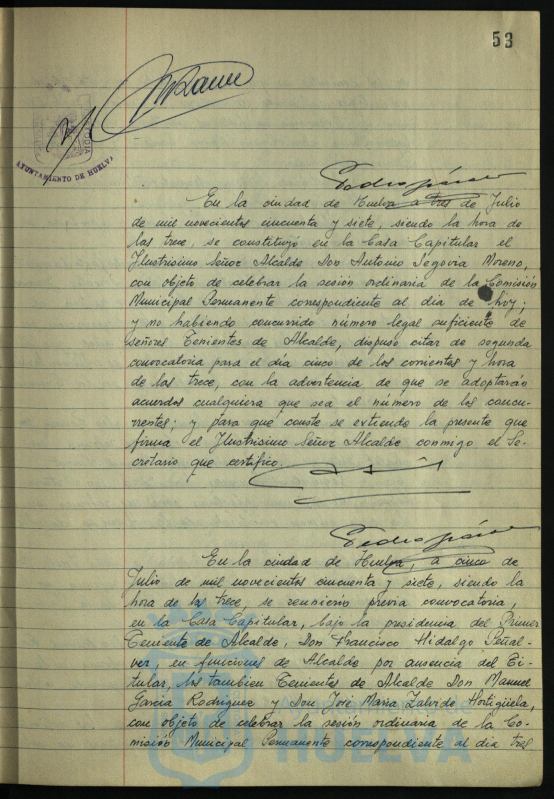 53
AYUNTAMIENTO DE HUELVA
En la ciudad de Huelva a tres de Julio
de mil novecientos cincuenta y siete, siendo la hora de
las trece, se constituyó en la Casa Capitular el
Ilustrisimo Señor Alcalde Don Antonio Segovia Moreno,
con objeto de celebrar la sesión ordinaria de la Comisión
Municipal Permanente correspondiente al dia de hoy;
y no habiendo concurrido número legal suficiente de
señores Tenientes de Alcalde, dispuso citar de segunda
convocatoria para el día cinco de los corrientes y hora
de las trece, con la advertencia de que se adoptarán
acuerdos cualquiera que sea el número de los concu-
rrentes; y para que conste se extiende la presente que
firma el Ilustrisimo Señor Alcalde conmigo el Se-
cretario que certifico.
En la ciudad de Huelva, a cinco de
Julio de mil novecientos cincuenta y siete, siendo la
hora de las trece, se reunieron previa convocatoria,
en la Casa Capitular, bajo la presidencia del Primer
Teniente de Alcalde, Don Francisco Hidalgo Peñal-
ver, en funciones de Alcalde por ausencia del Ti-
tular, los tambien Tenientes de Alcalde Don Manuel
Garcia Rodriguez y Don José Maria Zalvide Hortigüela,
con objeto de celebrar la sesión ordinaria de la Co-
misión Municipal Permanente correspondiente al dia tres
HUELVA